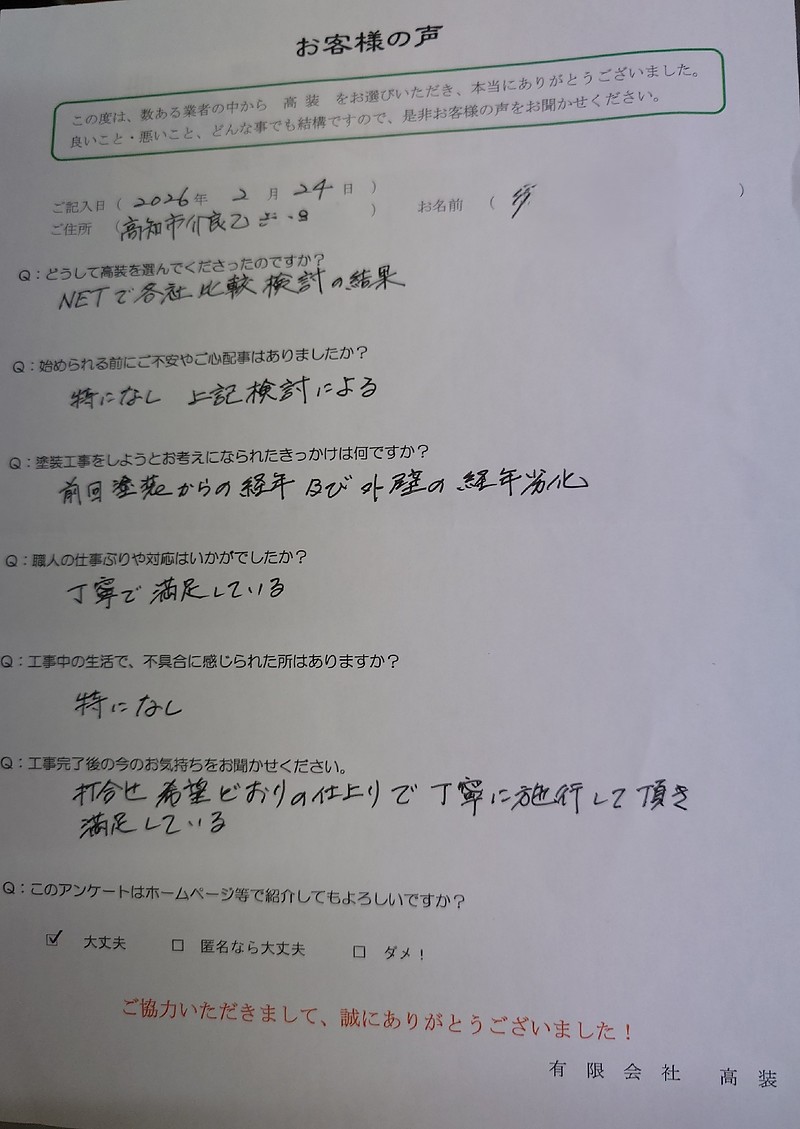 お客様の声
この度は、数ある業者の中から 高 装 をお選びいただき、本当にありがとうございました。
良いこと・悪いこと、どんな事でも結構ですので、是非お客様の声をお聞かせください。
ご記入日 ( 2026 年 2 月 24 日 ) お名前 ( )
ご住所 ( 高知市介良乙 )
Q：どうして高装を選んでくださったのですか？
NETで各社比較検討の結果
Q：始められる前にご不安やご心配事はありましたか？
特になし 上記検討による
Q：塗装工事をしようとお考えになられたきっかけは何ですか？
前回塗装からの経年及び外壁の経年劣化
Q：職人の仕事ぶりや対応はいかがでしたか？
丁寧で満足している
Q：工事中の生活で、不具合に感じられた所はありますか？
特になし
Q：工事完了後の今のお気持ちをお聞かせください。
打合せ希望どおりの仕上りで丁寧に施行して頂き
満足している
Q：このアンケートはホームページ等で紹介してもよろしいですか？
☑ 大丈夫 □ 匿名なら大丈夫 □ ダメ！
ご協力いただきまして、誠にありがとうございました！
有 限 会 社 高 装